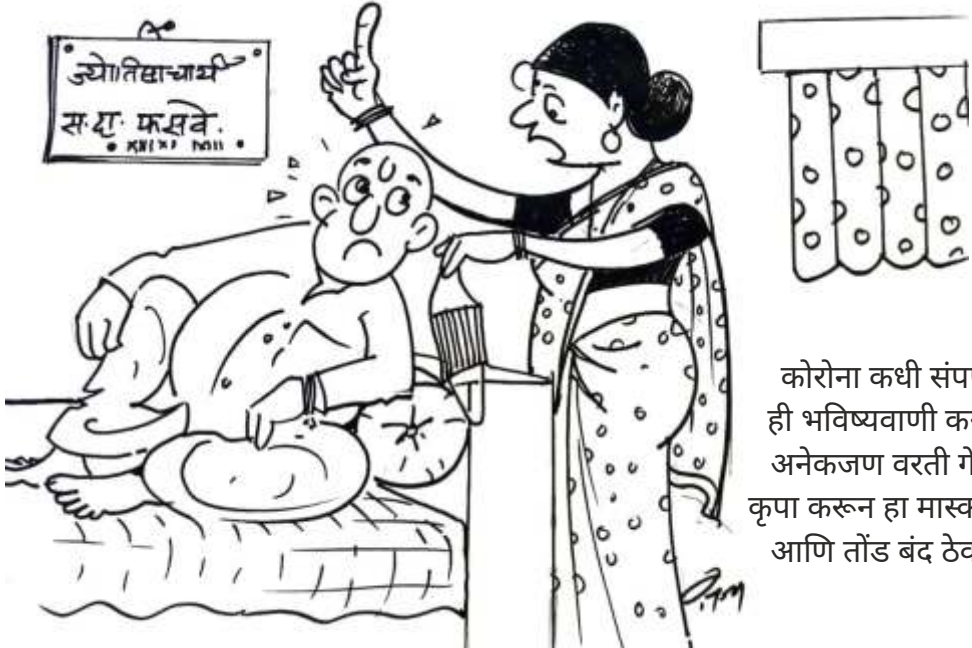 ज्योतिषाचार्य
स. दा. फसवे.
कोरोना कधी संप
ही भविष्यवाणी क
अनेकजण वरती गे
कृपा करून हा मास्क
आणि तोंड बंद ठेव